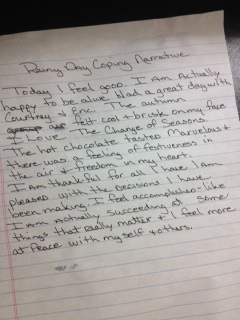 Rainy Day Coping Narrative
Today I feel good. I Am Actually
happy to be alive. Had a great day with
Courtney & Eric. The autumn
air felt cool + brisk on my face
I Love The Change of Seasons.
The hot chocolate tasted Marvelous &
there was a feeling of festiveness in
the air & freedom in my heart.
I am thankful for all I have. I Am
pleased with the decisions I have
been making. I feel accomplished-like
I am actually succeeding at some
things that really matter & I feel more
at peace with my self & others.